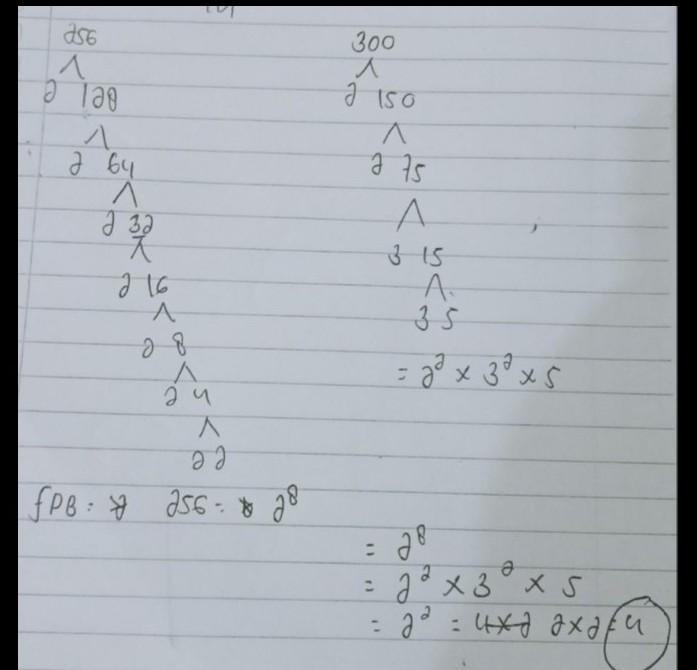 256
2 128
2 64
2 32
2 16
2 8
2 4
2 2
300
2 150
2 75
3 15
3 5
= 2² × 3² × 5
FPB : 256 = 2⁸
= 2⁸
= 2² × 3² × 5
= 2² = 4×2 2×2 = 4